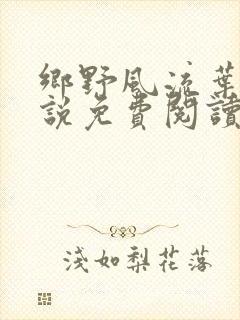 鄉野風流葉
說免費閱讀
淺如梨花落